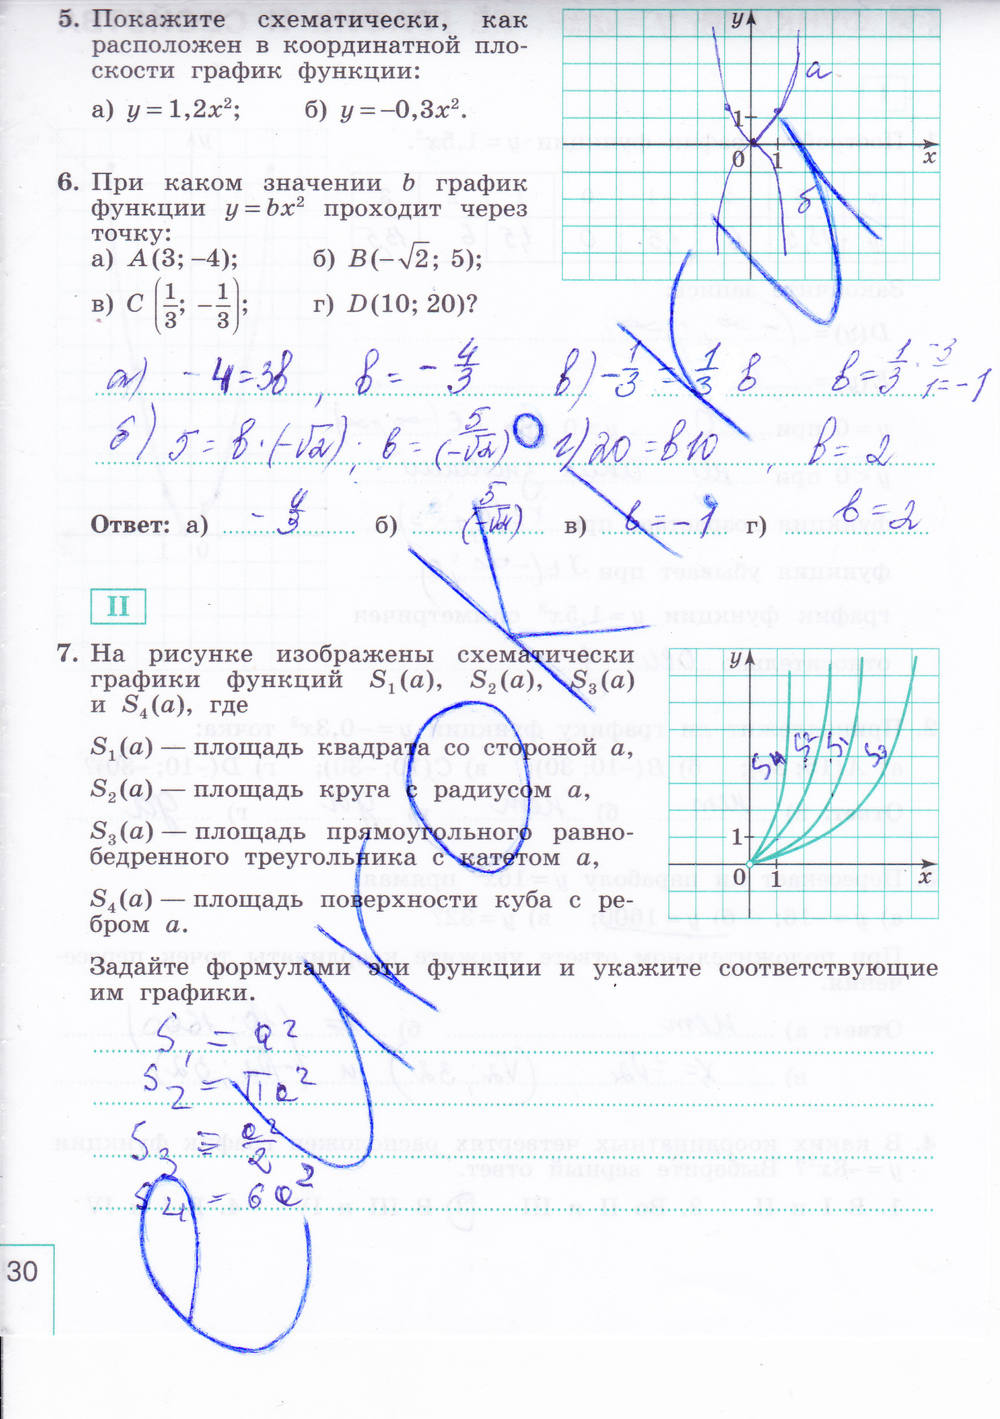 5. Покажите схематически, как
расположен в координатной пло-
скости график функции:
а) y = 1,2x²; б) y = −0,3x².
y
a
1
0 1 x
б
6. При каком значении b график
функции y = bx² проходит через
точку:
а) A(3; −4); б) B(−√2; 5);
в) C (1/3; −1/3); г) D(10; 20)?
а) −4 = 3b, b = −4/3 в) −1/3 = 1/3 b b = 1/3 · −3/1 = −1
б) 5 = b·(−√2); b = 5/(−√2) г) 20 = b10, b = 2
Ответ: а) −4/3 б) 5/(−√2) в) b = −1 г) b = 2
II
7. На рисунке изображены схематически
графики функций S₁(a), S₂(a), S₃(a)
и S₄(a), где
S₁(a) — площадь квадрата со стороной a,
S₂(a) — площадь круга с радиусом a,
S₃(a) — площадь прямоугольного равно-
бедренного треугольника с катетом a,
S₄(a) — площадь поверхности куба с ре-
бром a.
y
S4 S2 S1 S3
1
0 1 x
Задайте формулами эти функции и укажите соответствующие
им графики.
S₁ = a²
S₂ = πa²
S₃ = a²/2
S₄ = 6a²
30